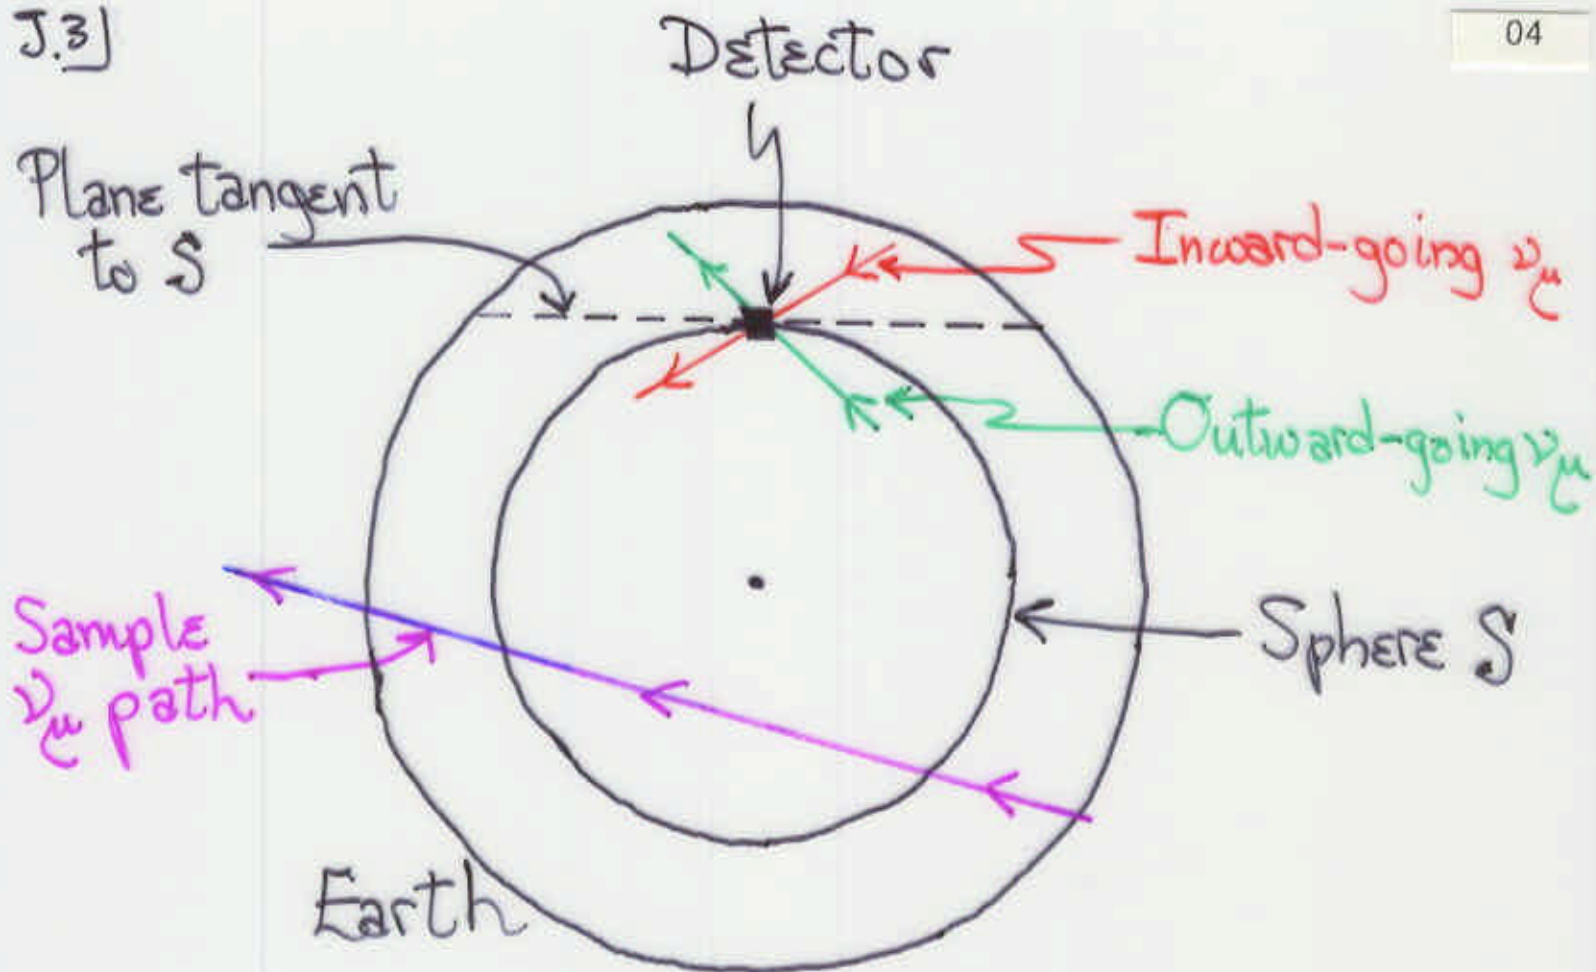 J.3]
04
Detector
Plane tangent
to S
Inward-going νμ
Outward-going νμ
Sample
νμ path
Sphere S
Earth